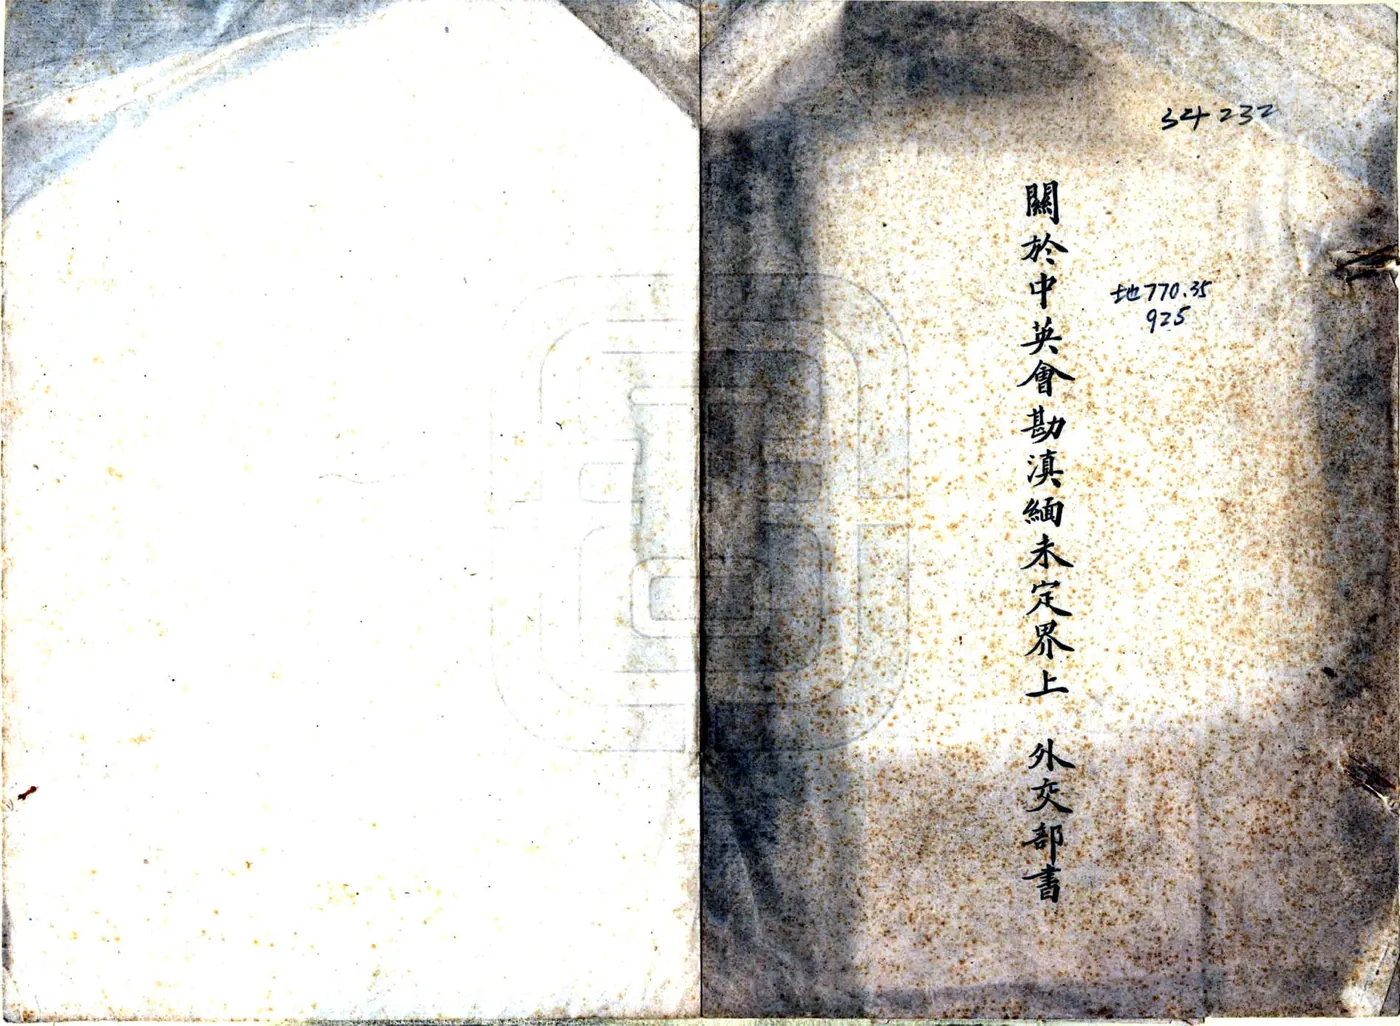 34232
關於中英會勘滇緬未定界上 外交部書
地770.35
925